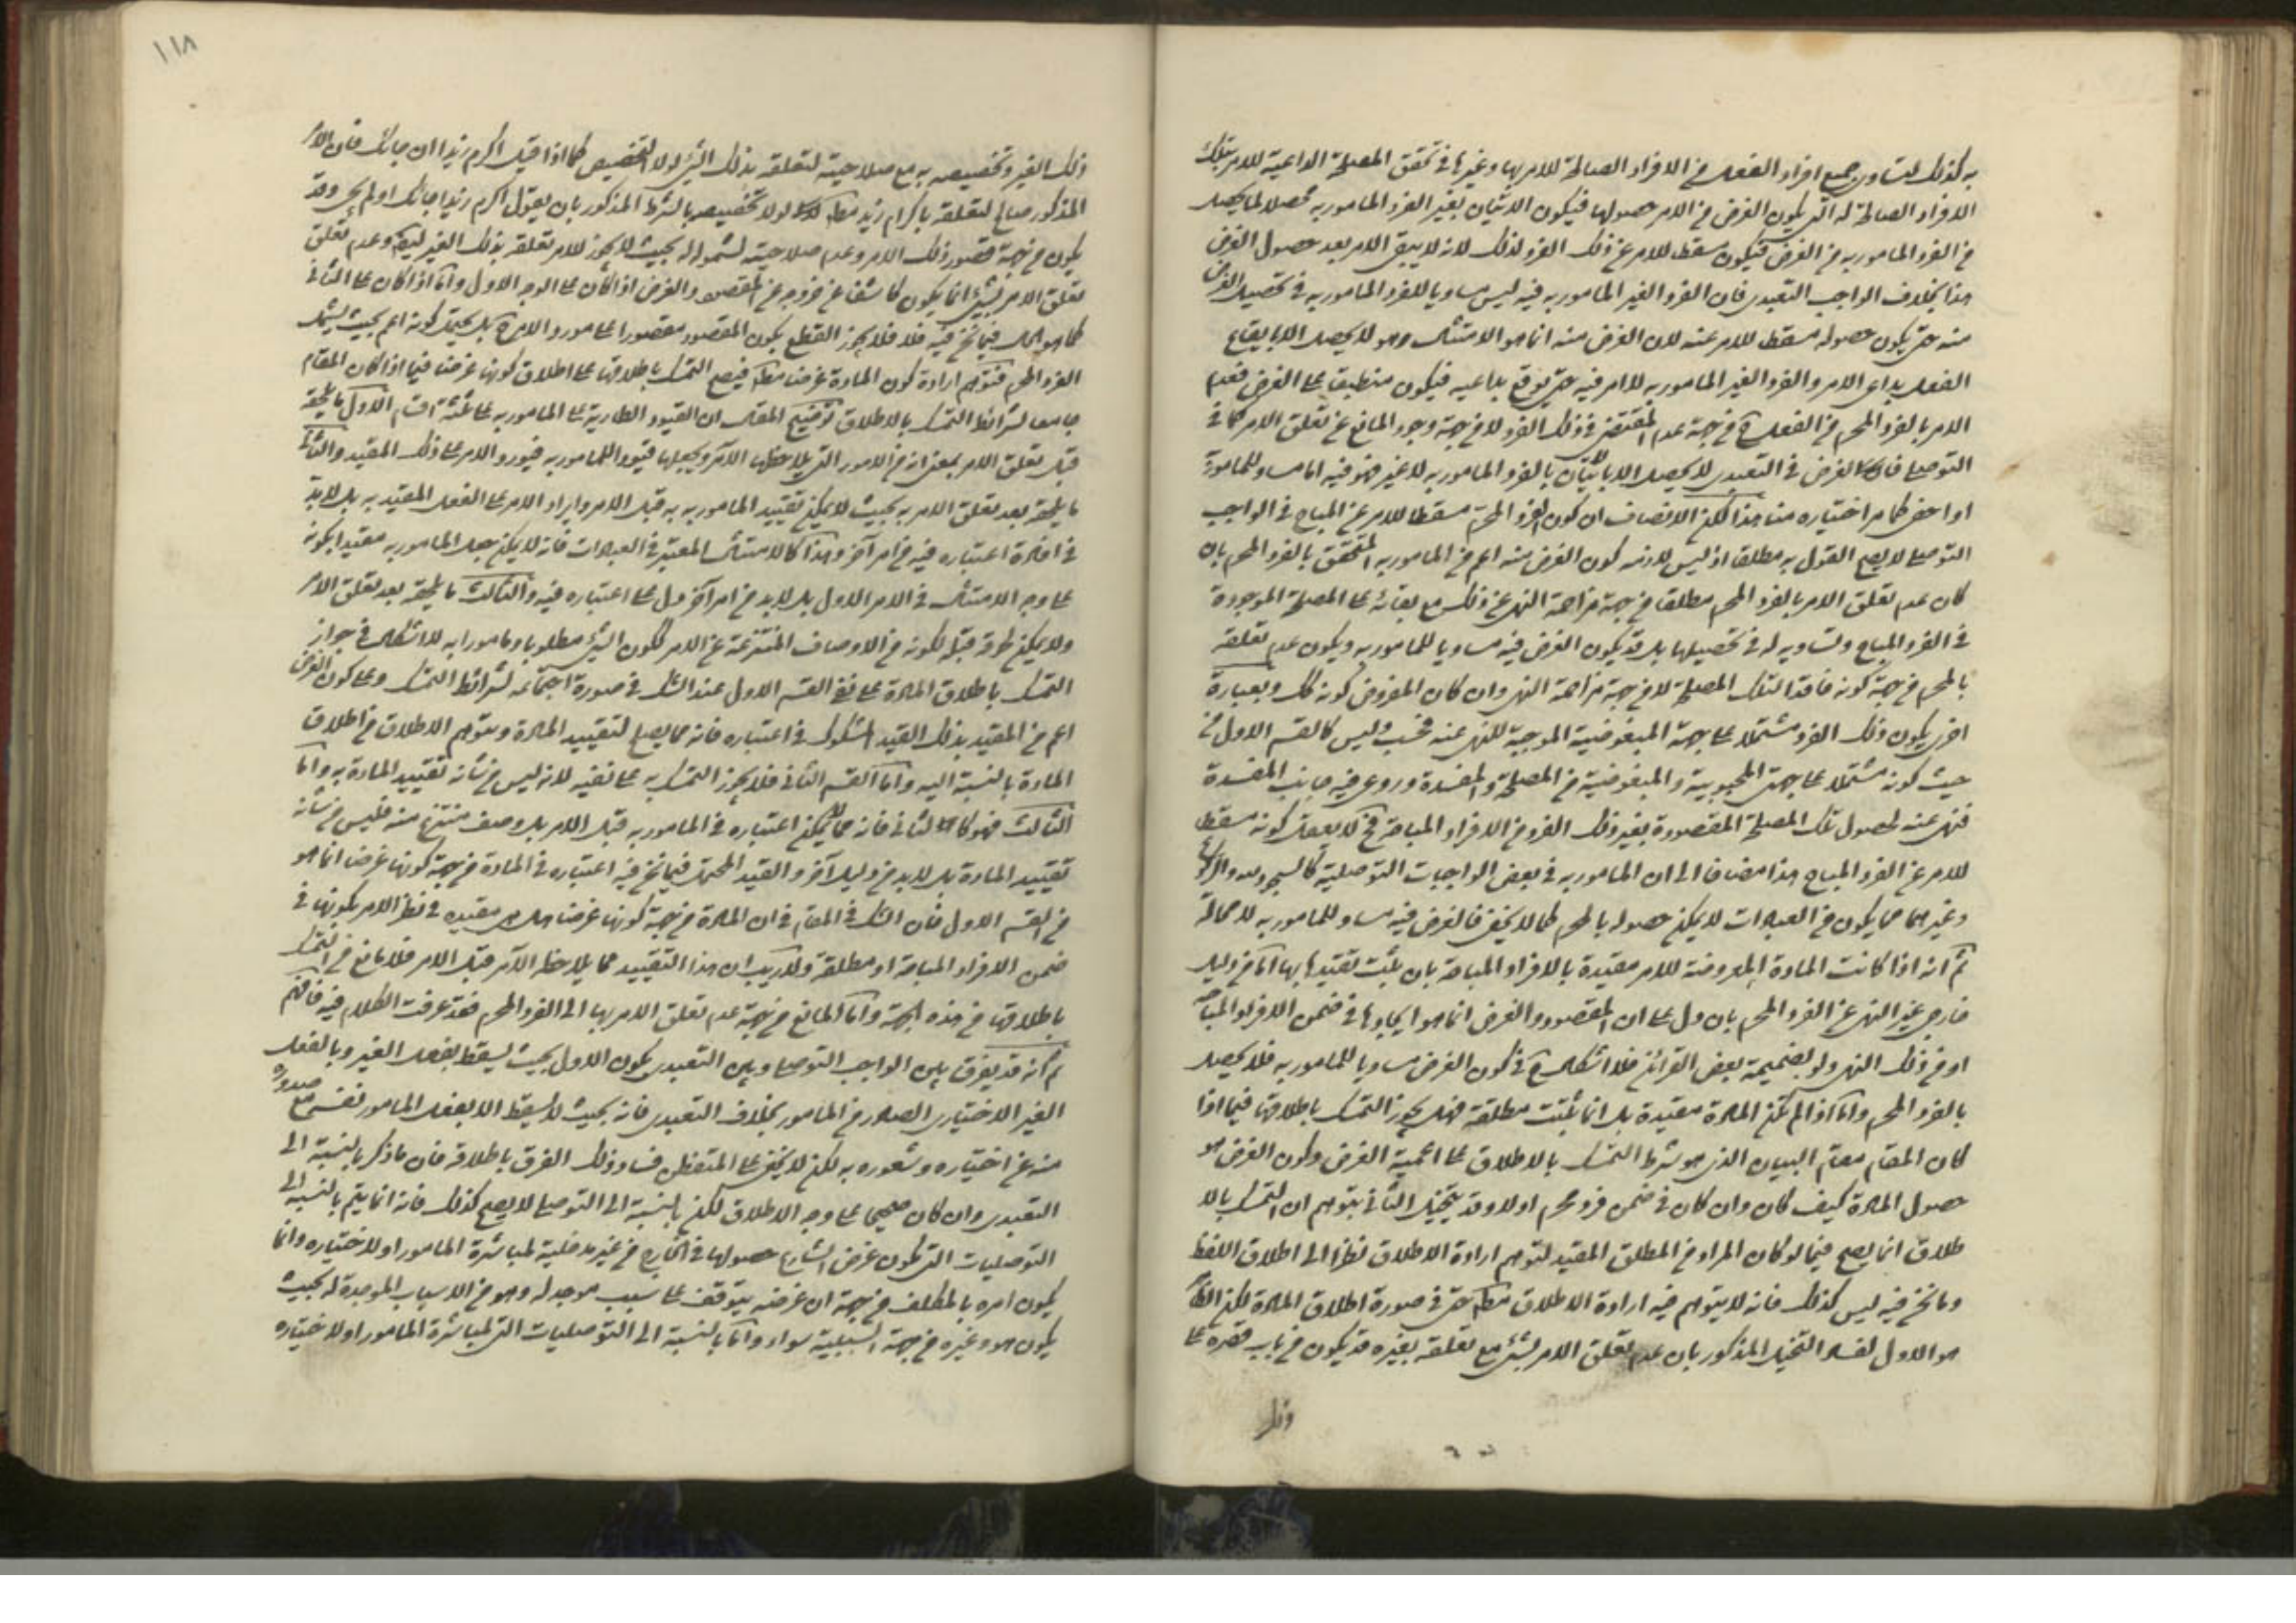 به كذلك لتساوى جميع افراد الفعل في الافراد الصالحة للامر بها وغيرها في تحقق المصلحة الداعية للامر بتلك
الافراد الصالحة له التي يكون الغرض من الامر حصولها فيكون الاتيان بغير الفرد المامور به محصلا لما يحصل
من الفرد المامور به من الغرض فيكون مسقطا للامر عن ذلك الفرد لذلك لانه لا يبقى الامر بعد حصول الغرض
هذا بخلاف الواجب التعبدى فان الفرد الغير المامور به فيه ليس مساويا للفرد المامور به في تحصيل الغرض
منه حتى يكون حصوله مسقطا للامر عنه لان الغرض منه انما هو الامتثال وهو لا يحصل الا بايقاع
الفعل بداعى الامر والفرد الغير المامور به لا امر فيه حتى يوقع بداعيه فيكون منطبقا على الغرض فعدم
الامر بالفرد المحرم من الفعل ح من جهة عدم المقتضى في ذلك الفرد لا من جهة وجود المانع عن تعلق الامر كما في
التوصلى فان الغرض في التعبدى لا يحصل الا بالاتيان بالفرد المامور به لا غير فهو فيه اما مساو للمامور به
او اخص كما مر اختياره منا هذا لكن الانصاف ان كون الفرد المحرم مسقطا للامر عن المباح في الواجب
التوصلى لا يصح القول به مطلقا اذ ليس لازمه كون الغرض منه اعم من المامور به المتحقق بالفرد المحرم بان
كان عدم تعلق الامر بالفرد المحرم مطلقا من جهة مزاحمة النهى عن ذلك مع بقائه على المصلحة الموجودة
في الفرد المباح وتساويه له في تحصيلها بل قد يكون الغرض فيه مساويا للمامور به ويكون عدم تعلقه
بالمحرم من جهة كونه فاقدا لتلك المصلحة لا من جهة مزاحمة النهى وان كان المفروض كونه كك وبعبارة
اخرى يكون ذلك الفرد مشتملا على جهة المبغوضية الموجبة للنهى عنه فحسب وليس كالقسم الاول من
حيث كونه مشتملا على جهتى المحبوبية والمبغوضية من المصلحة والمفسدة وروعى فيه جانب المفسدة
فنهى عنه لحصول تلك المصلحة المقصودة بغير ذلك الفرد من الافراد المباحة فح لا يعقل كونه مسقطا
للامر عن الفرد المباح هذا مضافا الى ان المامور به في بعض الواجبات التوصلية كالسجود والركوع
وغيرهما مما يكون من العبادات لا يمكن حصوله بالمحرم كما لا يخفى فالغرض فيه مساو للمامور به لا محالة
ثم انه اذا كانت المادة المعروضة للامر مقيدة بالافراد المباحة بان يثبت تقيدها بها اما من دليل
خارجى غير النهى عن الفرد المحرم بان دل على ان المقصود والغرض انما هو ايجادها في ضمن الافراد المباحة
او من ذلك النهى ولو بضميمة بعض القرائن فلا اشكال ح في كون الغرض مساويا للمامور به فلا يحصل
بالفرد المحرم واما اذا لم تكن المادة مقيدة بل انما ثبتت مطلقة فهل يجوز التمسك باطلاقها فيما اذا
كان المقام مقام البيان الذى هو شرط التمسك بالاطلاق على اعمية الغرض وكون الغرض هو
حصول المادة كيف كان وان كان في ضمن فرد محرم اولا وقد يتخيل الثانى بتوهم ان التمسك بالا
طلاق انما يصح فيما لو كان المراد من المطلق المقيد لتوهم ارادة الاطلاق نظرا الى اطلاق اللفظ
وما نحن فيه ليس كذلك فانه لا يتوهم فيه ارادة الاطلاق مط حتى في صورة اطلاق المادة لكن الظ
هو الاول لفساد التخيل المذكور بان عدم تعلق الامر بشئ مع تعلقه بغيره قد يكون من باب قصره على
ذلك
١١٨
ذلك الغير وتخصيصه به مع صلاحية لتعلقه بذلك الشئ لولا التخصيص كما اذا قيل اكرم زيدا ان جائك فان الامر
المذكور صالح لتعلقه باكرام زيد مط لولا تخصيصه بالشرط المذكور بان يقول اكرم زيدا جائك او لم يجئ وقد
يكون من جهة قصور ذلك الامر وعدم صلاحيته لشموله له بحيث لا يجوز للامر تعلقه بذلك الغير ايضا وعدم تعلق
تعلق الامر بشئ انما يكون كاشفا عن خروجه عن المقصود والغرض اذا كان على الوجه الاول واما اذا كان على الثانى
كما هو الحال فيما نحن فيه فلا فلا يجوز القطع بكون المقصود مقصورا على مورد الامر ح بل يحتمل كونه اعم بحيث يشمل
الفرد المحرم فيتوهم ارادة كون المادة غرضا مط فيصح التمسك باطلاقها على اطلاق كونها غرضا فيما اذا كان المقام
جامعا لشرائط التمسك بالاطلاق توضيح المقال ان القيود الطارية على المامور به على ثلثة اقسام الاول ما يلحقه
قبل تعلق الامر بمعنى انه من الامور التي يلاحظها الآمر ويجعلها قيودا للمامور به فيورد الامر على ذلك المقيد والثانى
ما يلحقه بعد تعلق الامر به بحيث لا يمكن تقييد المامور به به قبل الامر وايراد الامر على الفعل المقيد به بل لا بد
في افادة اعتباره فيه من امر آخر وهذا كالامتثال المعتبر في العبادات فانه لا يمكن جعل المامور به مقيدا بكونه
على وجه الامتثال في الامر الاول بل لا بد من امر آخر دل على اعتباره فيه والثالث ما يلحقه بعد تعلق الامر
ولا يمكن لحوقه قبله لكونه من الاوصاف المنتزعة عن الامر ككون الشئ مطلوبا ومامورا به لا اشكال في جواز
التمسك باطلاق المادة على نفى القسم الاول عند الشك في صورة اجتماعه لشرائط التمسك وعلى كون الغرض
اعم من المقيد بذلك القيد المشكوك في اعتباره فانه مما يصلح لتقييد المادة ويتوهم الاطلاق من اطلاق
المادة بالنسبة اليه واما القسم الثانى فلا يجوز التمسك به على نفيه لانه ليس من شأنه تقييد المادة به واما
الثالث فهو كالثانى فانه مما لا يمكن اعتباره في المامور به قبل الامر بل وصف منتزع منه فليس من شأنه
تقييد المادة بل لا بد من دليل آخر والقيد المحتمل فيما نحن فيه اعتباره في المادة من جهة كونها غرضا انما هو
من القسم الاول فان الشك في المقام في ان المادة من جهة كونها غرضا هل مقيدة في نظر الامر بكونها في
ضمن الافراد المباحة او مطلقة ولا ريب ان هذا التقييد مما يلاحظه الآمر قبل الامر فلا مانع من التمسك
باطلاقها من هذه الجهة واما المانع من جهة عدم تعلق الامر بها الى الفرد المحرم فقد عرفت الكلام فيه فافهم
ثم انه قد يفرق بين الواجب التوصلى وبين التعبدى بكون الاول بحيث يسقط بفعل الغير وبالفعل
الغير الاختيارى الصادر من المامور بخلاف التعبدى فانه بحيث لا يسقط الا بفعل المامور نفسه مع صدوره
منه عن اختياره وشعوره به لكن لا يخفى على المتفطن فساد ذلك الفرق باطلاقه فان ما ذكر بالنسبة الى
التعبدى وان كان صحيحا على وجه الاطلاق لكن بالنسبة الى التوصلى لا يصح كذلك فانه انما يتم بالنسبة الى
التوصليات التي يكون غرض الشارع حصولها في الخارج من غير مدخلية لمباشرة المامور او لاختياره وانما
يكون امره بالمكلف من جهة ان غرضه يتوقف على سبب موجد له وهو من الاسباب الموجدة له بحيث
يكون هو وغيره من جهة السببية سواء واما بالنسبة الى التوصليات التي لمباشرة المامور او لاختياره